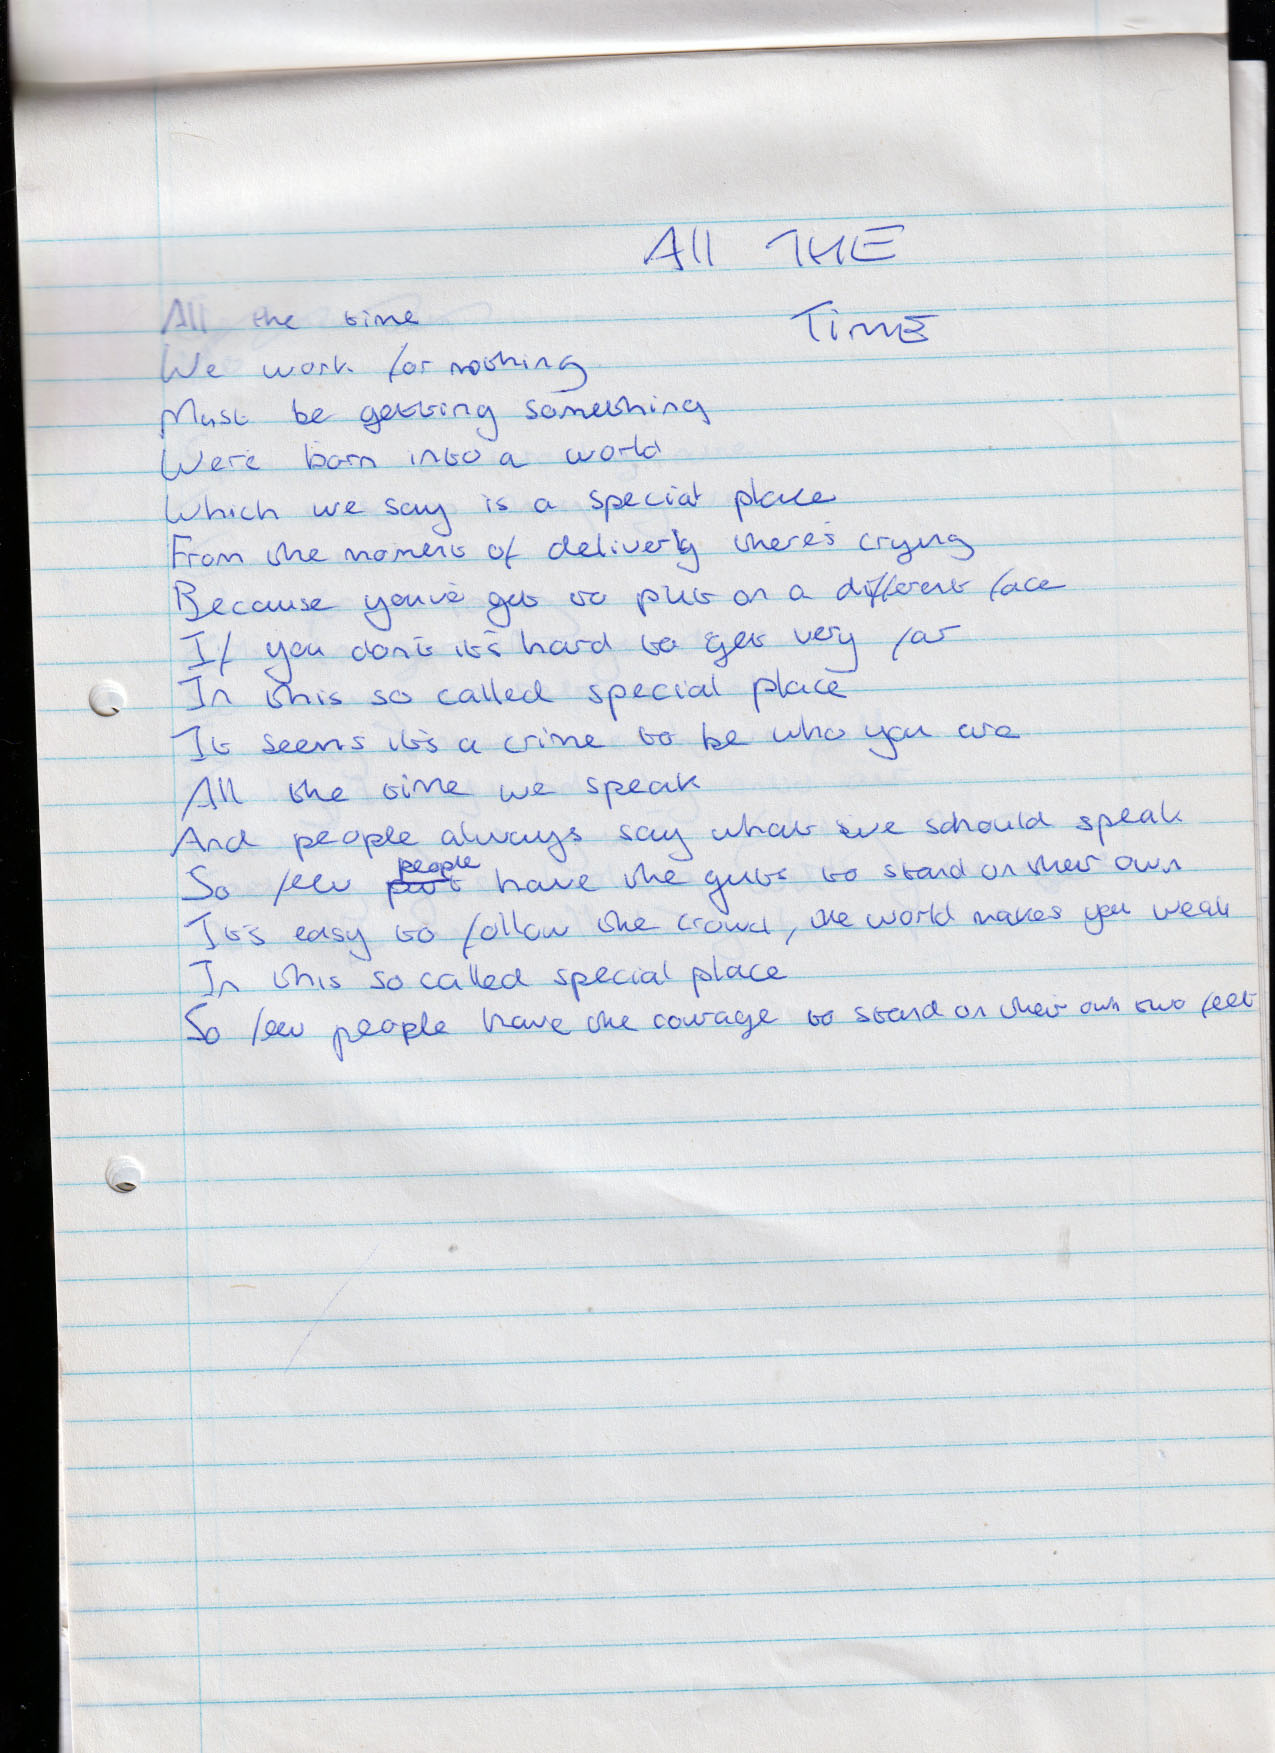 All THE
TimE
All the time
We work for nothing
Must be getting something
We're born into a world
Which we say is a special place
From the moment of delivery there's crying
Because you've got to put on a different face
If you don't it's hard to get very far
In this so called special place
It seems it's a crime to be who you are
All the time we speak
And people always say what we should speak
So few people have the guts to stand on their own
It's easy to follow the crowd, the world makes you weak
In this so called special place
So few people have the courage to stand on their own two feet